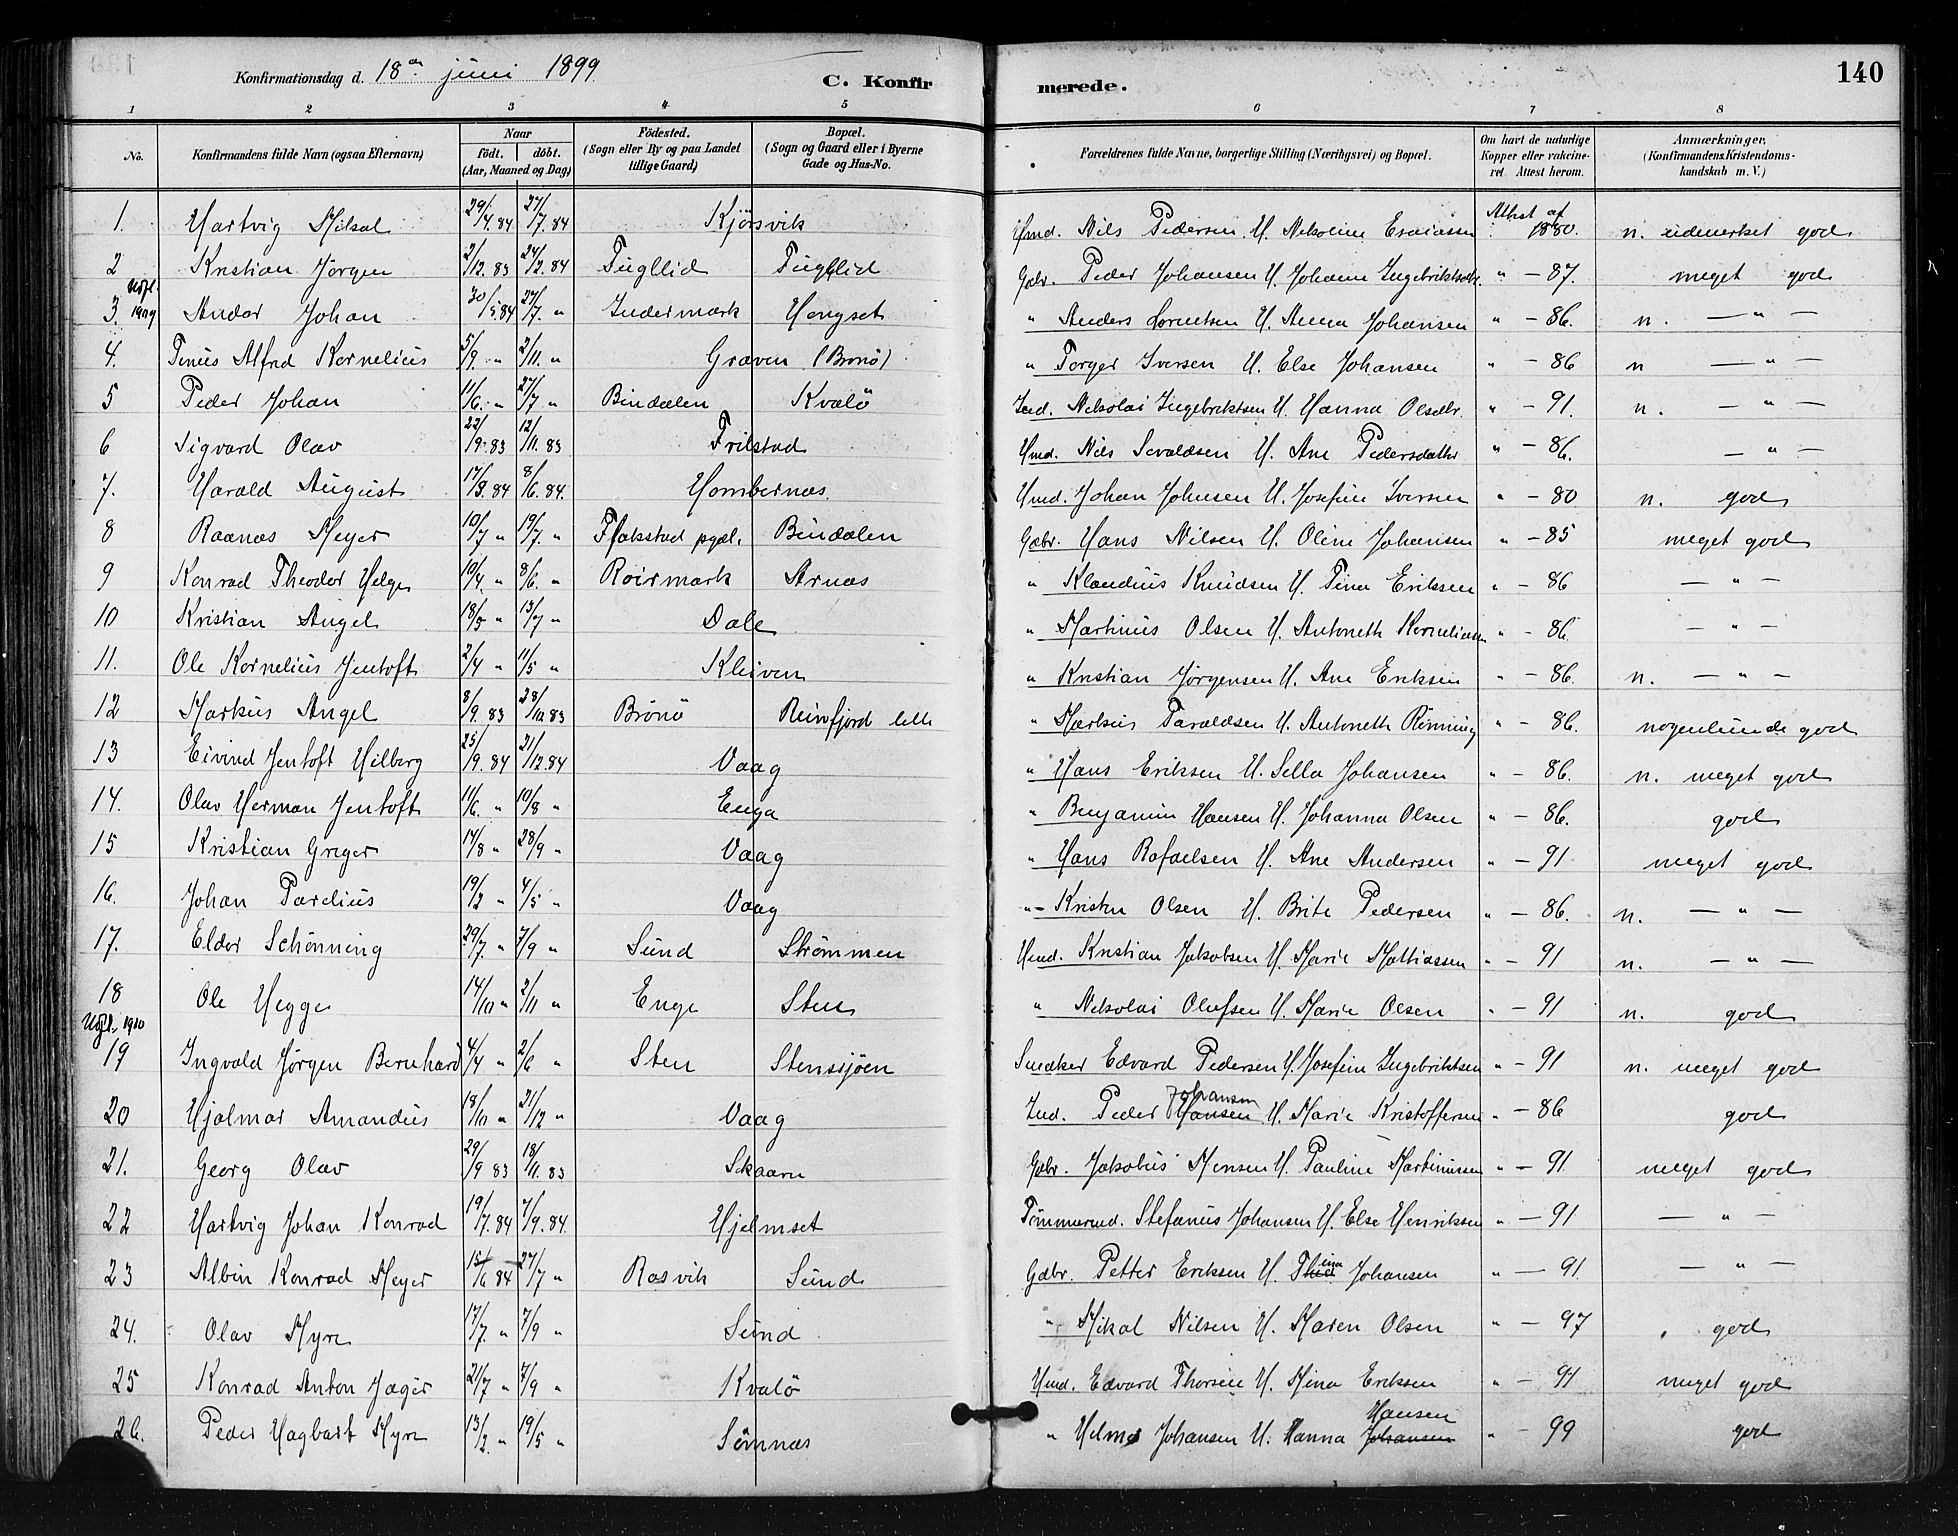 Konfirmationsdag d. 18de juni 1899.
C. Konfirmerede.
140
1 2 3 4 5 6 7 8
No. Konfirmandens fulde Navn (ogsaa Efternavn) Naar født. døbt. (Aar, Maaned og Dag) Födested. (Sogn eller By og paa Landet tillige Gaard) Bopæl. (Sogn og Gaard eller i Byerne Gade og Hus-No. Forældrenes fulde Navne, borgerlige Stilling (Næringsvei) og Bopæl. Om havt de naturlige Kopper eller vakcineret Attest herom. Anmærkninger, (Konfirmandens Kristendomskundskab m. V.)
1. Hartvig Mikal 29/4.84 27/7.84 Kjørsvik Hmd. Nils Pedersen H. Nikoline Esaiassen Attest af 1880. n. udmerket god
2 Kristian Jörgen 2/12.83 24/2.84 Fugllid Fugllid Gdbr. Peder Johansen H. Johanna Ingebriktsdtr. " - 87. meget god
Udfl. 1909
3. Andor Johan 30/5.84 27/7. " Indermark Hongset " Anders Cornelsen H. Anna Johansen " - 86. n. - " -
4. Tenus Alfred Kornelius 5/9. " 2/11. " Graven (Brönö) " Torger Iversen H. Else Johansen " - 86 n - " -
5 Peder Johan 11/6. " 27/7 " Bindalen Kvalö Ind. Nikolai Ingebriktsen H. Hanna Olsdtr. " - 91. n. - " -
6 Sigvard Olav 22/9.83 12/11.83 Frilstad Hmd. Nils Sevaldsen H. Ane Pedersdatter " - 86. - " -
7. Harald August 17/3.84 8/6.84. Hombornæs. Hmd. Johan Johnsen H. Josefine Iversen " - 80 n. god
8 Raanas Meyer 10/7 " 19/7. " Flakstad pgjæl. Bindalen Gdbr. Hans Nilsen H. Oline Johansen " - 85 meget god
9 Konrad Theodor Helge 10/4. " 8/6. " Roirmark Arnæs " Klaudius Knudsen H. Tina Eriksen " - 86 - " -
10 Kristian Angel 18/5 " 13/7 " Dale " Martinus Olsen H. Antonette Korneliussen " - 86. - " -
11. Ole Kornelius Jentoft 2/4 " 11/5 " Kleiven " Kristian Jørgensen H. Ane Eriksen " - 86. n. - " -
12 Markus Angel 8/9.83 28/10.83 Brönö Reinfjord lille " Markus Taraldsen H. Antonette Rönning " - 86. nogenlunde god
13 Eivind Jentoft Hilberg 25/9.84 21/12.84 Vaag " Hans Eriksen H. Sella Johansen " - 86. n. meget god
14. Olav Herman Jentoft 11/6. " 10/8 " Enga " Benjamin Hansen H. Johanna Olsen " - 86. god
15 Kristian Greger 14/8 " 28/9 " Vaag " Hans Rafaelsen H. Ane Andersen " - 91 meget god
16. Johan Pardelius 19/2 " 4/5 " Vaag " Kristen Olsen H. Brite Pedersen " - 86. n. - " -
17. Eldor Schönning 29/7. " 7/9 " Sund Strömmen Hmd. Kristian Jakobsen H. Marie Mathiassen " - 91 n. - " -
18 Ole Hegge 14/10 " 2/11 " Enge Sten " Nikolai Olufsen H. Marie Olsen " - 91 n. god
Udfl. 1910
19 Ingvald Jørgen Bernhard 4/4 " 2/6 " Sten Stenssjöen Snedker Edvard Pedersen H. Josefine Ingebriktsen " - 91 n. meget god
20 Hjalmar Amandus 18/10 " 21/12 " Vaag Ind. Peder Hansen Johansen H. Marie Kristoffersen " - 86 god
21. Georg Olav 29/9 83 18/11.83 Skaaren Gdbr. Jakobus Monsen H. Pauline Martinussen " - 91 meget god
22 Hartvig Johan Konrad 19/7.84 7/9.84. Hjelmset Tömmermd. Stefanus Johansen H. Else Henriksen " - 91 - " -
23 Albin Konrad Meyer 15/6 84 27/7 " Rosvik Sund Gdbr. Petter Eriksen H. Thina Johansen " - 91 - " -
24. Olav Myre 17/7. " 7/9 " Sund " Mikal Nilsen H. Maren Olsen " - 97 god
25 Konrad Anton Jæger 21/7 " 7/9 " Kvalö Hmd. Edvard Thorsen H. Mina Eriksen " - 91 meget god
26. Peder Hagbart Myre 13/2. " 19/5 " Sömnæs " Helmer Johansen H. Hanna Johansen Hansen " - 99 god